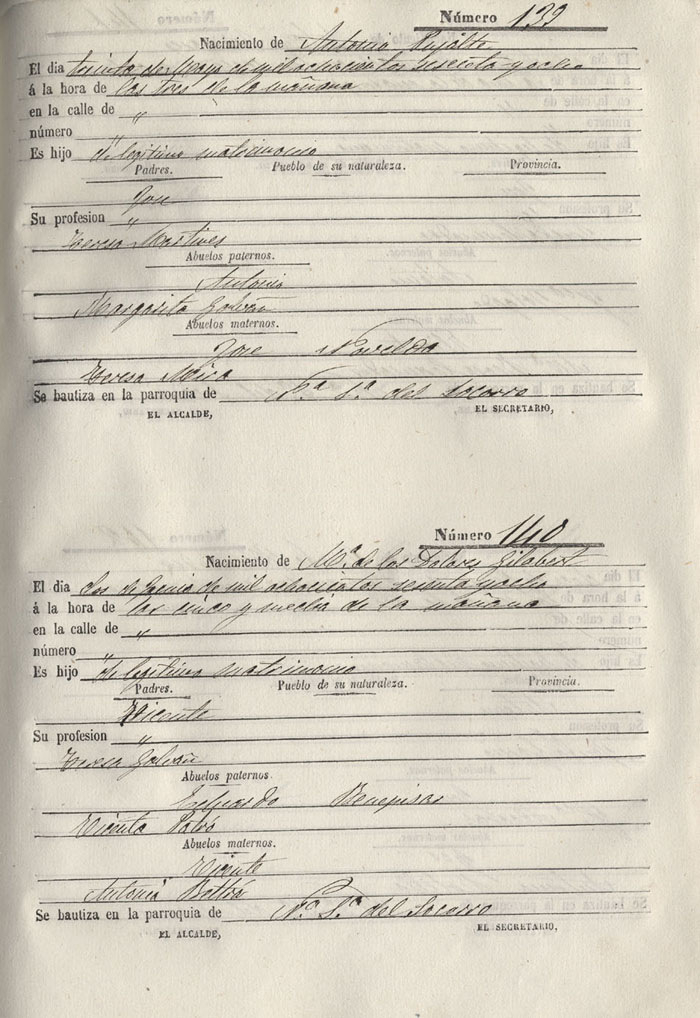 Número 139
Nacimiento de Antonio Pujalte
El dia treinta de Mayo de mil ochocientos sesenta y ocho
á la hora de las tres de la mañana
en la calle de "
número "
Es hijo de legitimo matrimonio
Padres. Pueblo de su naturaleza. Provincia.
Jose
Su profesion "
Teresa Martines
Abuelos paternos.
Antonio
Margarita Galvañ
Abuelos maternos.
Jose Novelda
Teresa Mira
Se bautiza en la parroquia de Nª Sª del Socorro
EL ALCALDE, EL SECRETARIO,
Número 140
Nacimiento de Mª de los Dolores Gilabert
El dia dos de Junio de mil ochocientos sesenta y ocho
á la hora de las cinco y media de la mañana
en la calle de "
número "
Es hijo de legitimo matrimonio
Padres. Pueblo de su naturaleza. Provincia.
Vicente
Su profesion "
Teresa Galvañ
Abuelos paternos.
Benepisar
Vicenta
Abuelos maternos.
Vicente
Antonia Beltrá
Se bautiza en la parroquia de Nª Sª del Socorro
EL ALCALDE, EL SECRETARIO,